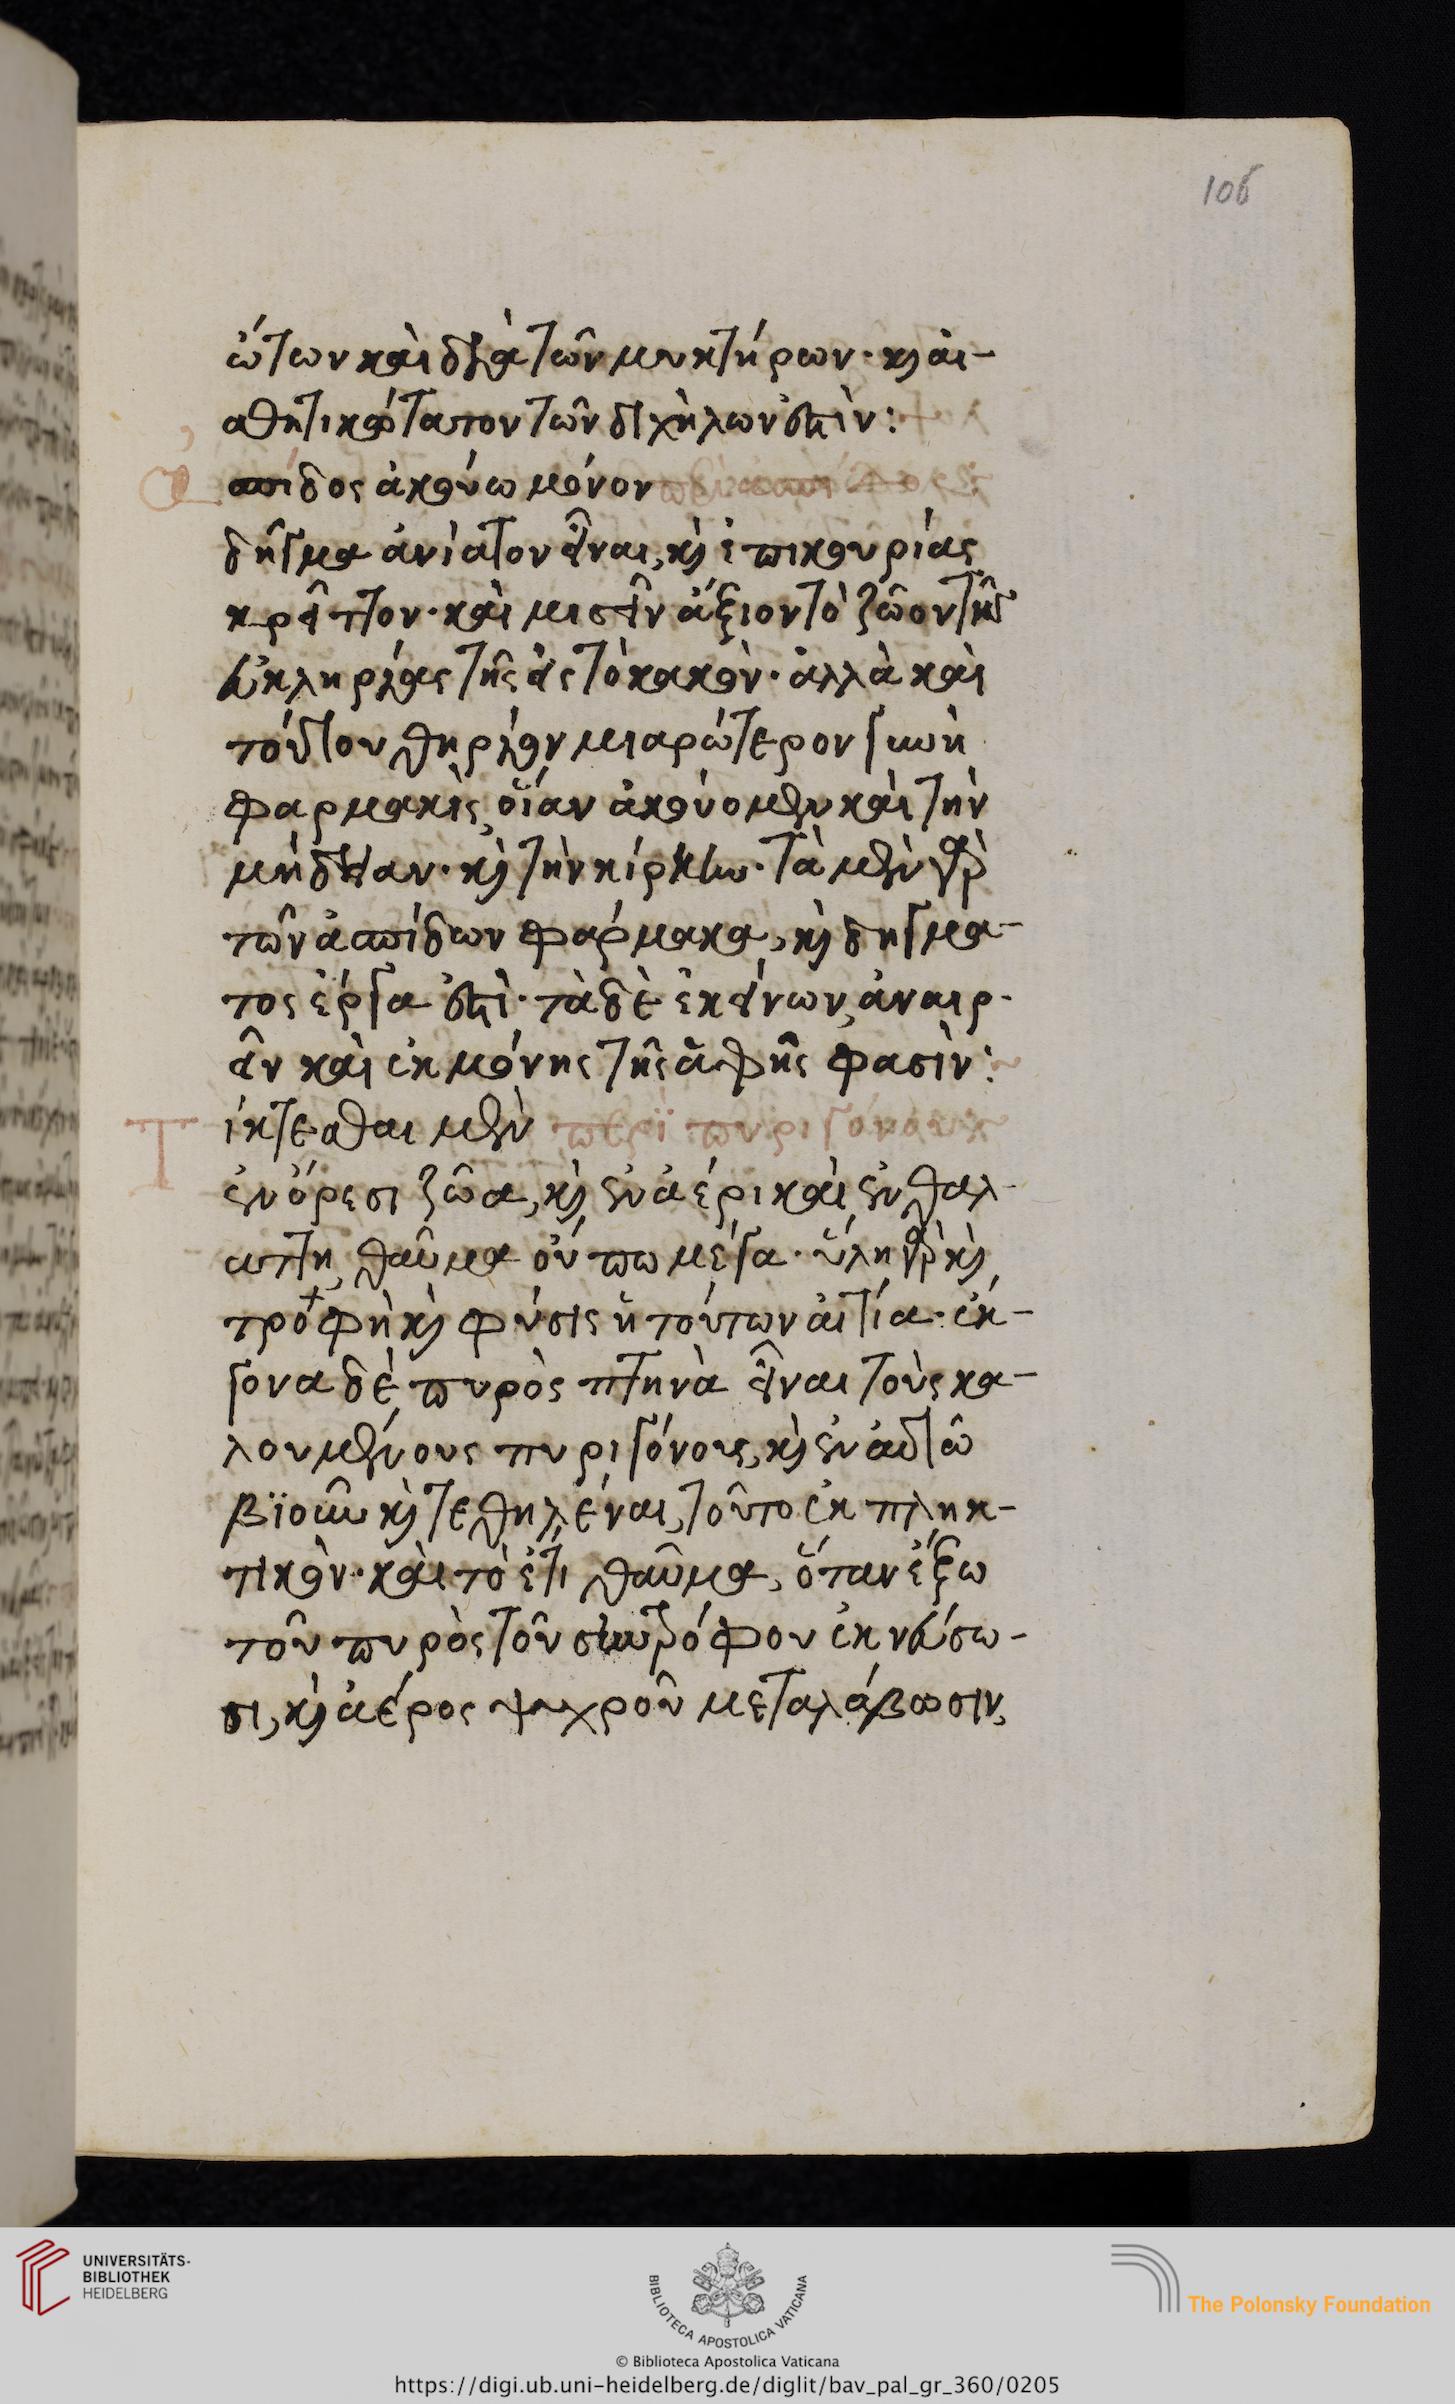 106
ώτων καὶ διὰ τῶν μυκτήρων· κ̀ αἰ-
σθητικώτατον τῶν διχήλων ἐστὶν:
Ἀσπίδος ἀκούω μόνον περὶ ἀσπίδος
δῆγμα ἀνίατον εἶναι, κ̀ ἐπικουρίας
κρεῖττον· καὶ μισεῖν ἄξιον τὸ ζῶον τῆς
κληρίας τῆς εἰς τὸ κακὸν· ἀλλὰ καὶ
τούτου θηρίον μιαρώτερον γυνὴ
φαρμακὶς, οἵαν ἀκούομεν καὶ τὴν
μήδειαν· κ̀ τὴν κίρκην· τὰ μὲν γὰρ
τῶν ἀσπίδων φάρμακα, κ̀ δήγμα-
τος ἔργα ἐστὶ· τὰ δὲ ἐκείνων, ἀναιρ-
εῖν καὶ ἐκ μόνης τῆς ἁφῆς φασὶν:
Τίκτεσθαι μὲν περὶ πυριγόνου
ἐν ὄρεσι ζῶα, κ̀ ἐν ἀέρι καὶ ἐν θαλ-
αττη, θαῦμα οὔπω μέγα· ὕλη γὰρ κ̀
τροφὴ κ̀ φύσις ἡ τούτων αἰτία· ἔκ-
γονα δὲ πυρὸς πτηνὰ εἶναι τοὺς κα-
λουμένους πυριγόνους, κ̀ ἐν αὐτῶ
βϊοῦν κ̀ τεθηλέναι, τοῦτο ἐκπληκ-
τικὸν· καὶ τὸ ἔτι θαῦμα, ὅταν ἔξω
τοῦ πυρὸς τοῦ συντρόφου ἐκνεύσω-
σι, κ̀ ἀέρος ψυχροῦ μεταλάβωσιν,
UNIVERSITÄTS-
BIBLIOTHEK
HEIDELBERG
BIBLIOTECA APOSTOLICA VATICANA
© Biblioteca Apostolica Vaticana
The Polonsky Foundation
https://digi.ub.uni-heidelberg.de/diglit/bav_pal_gr_360/0205